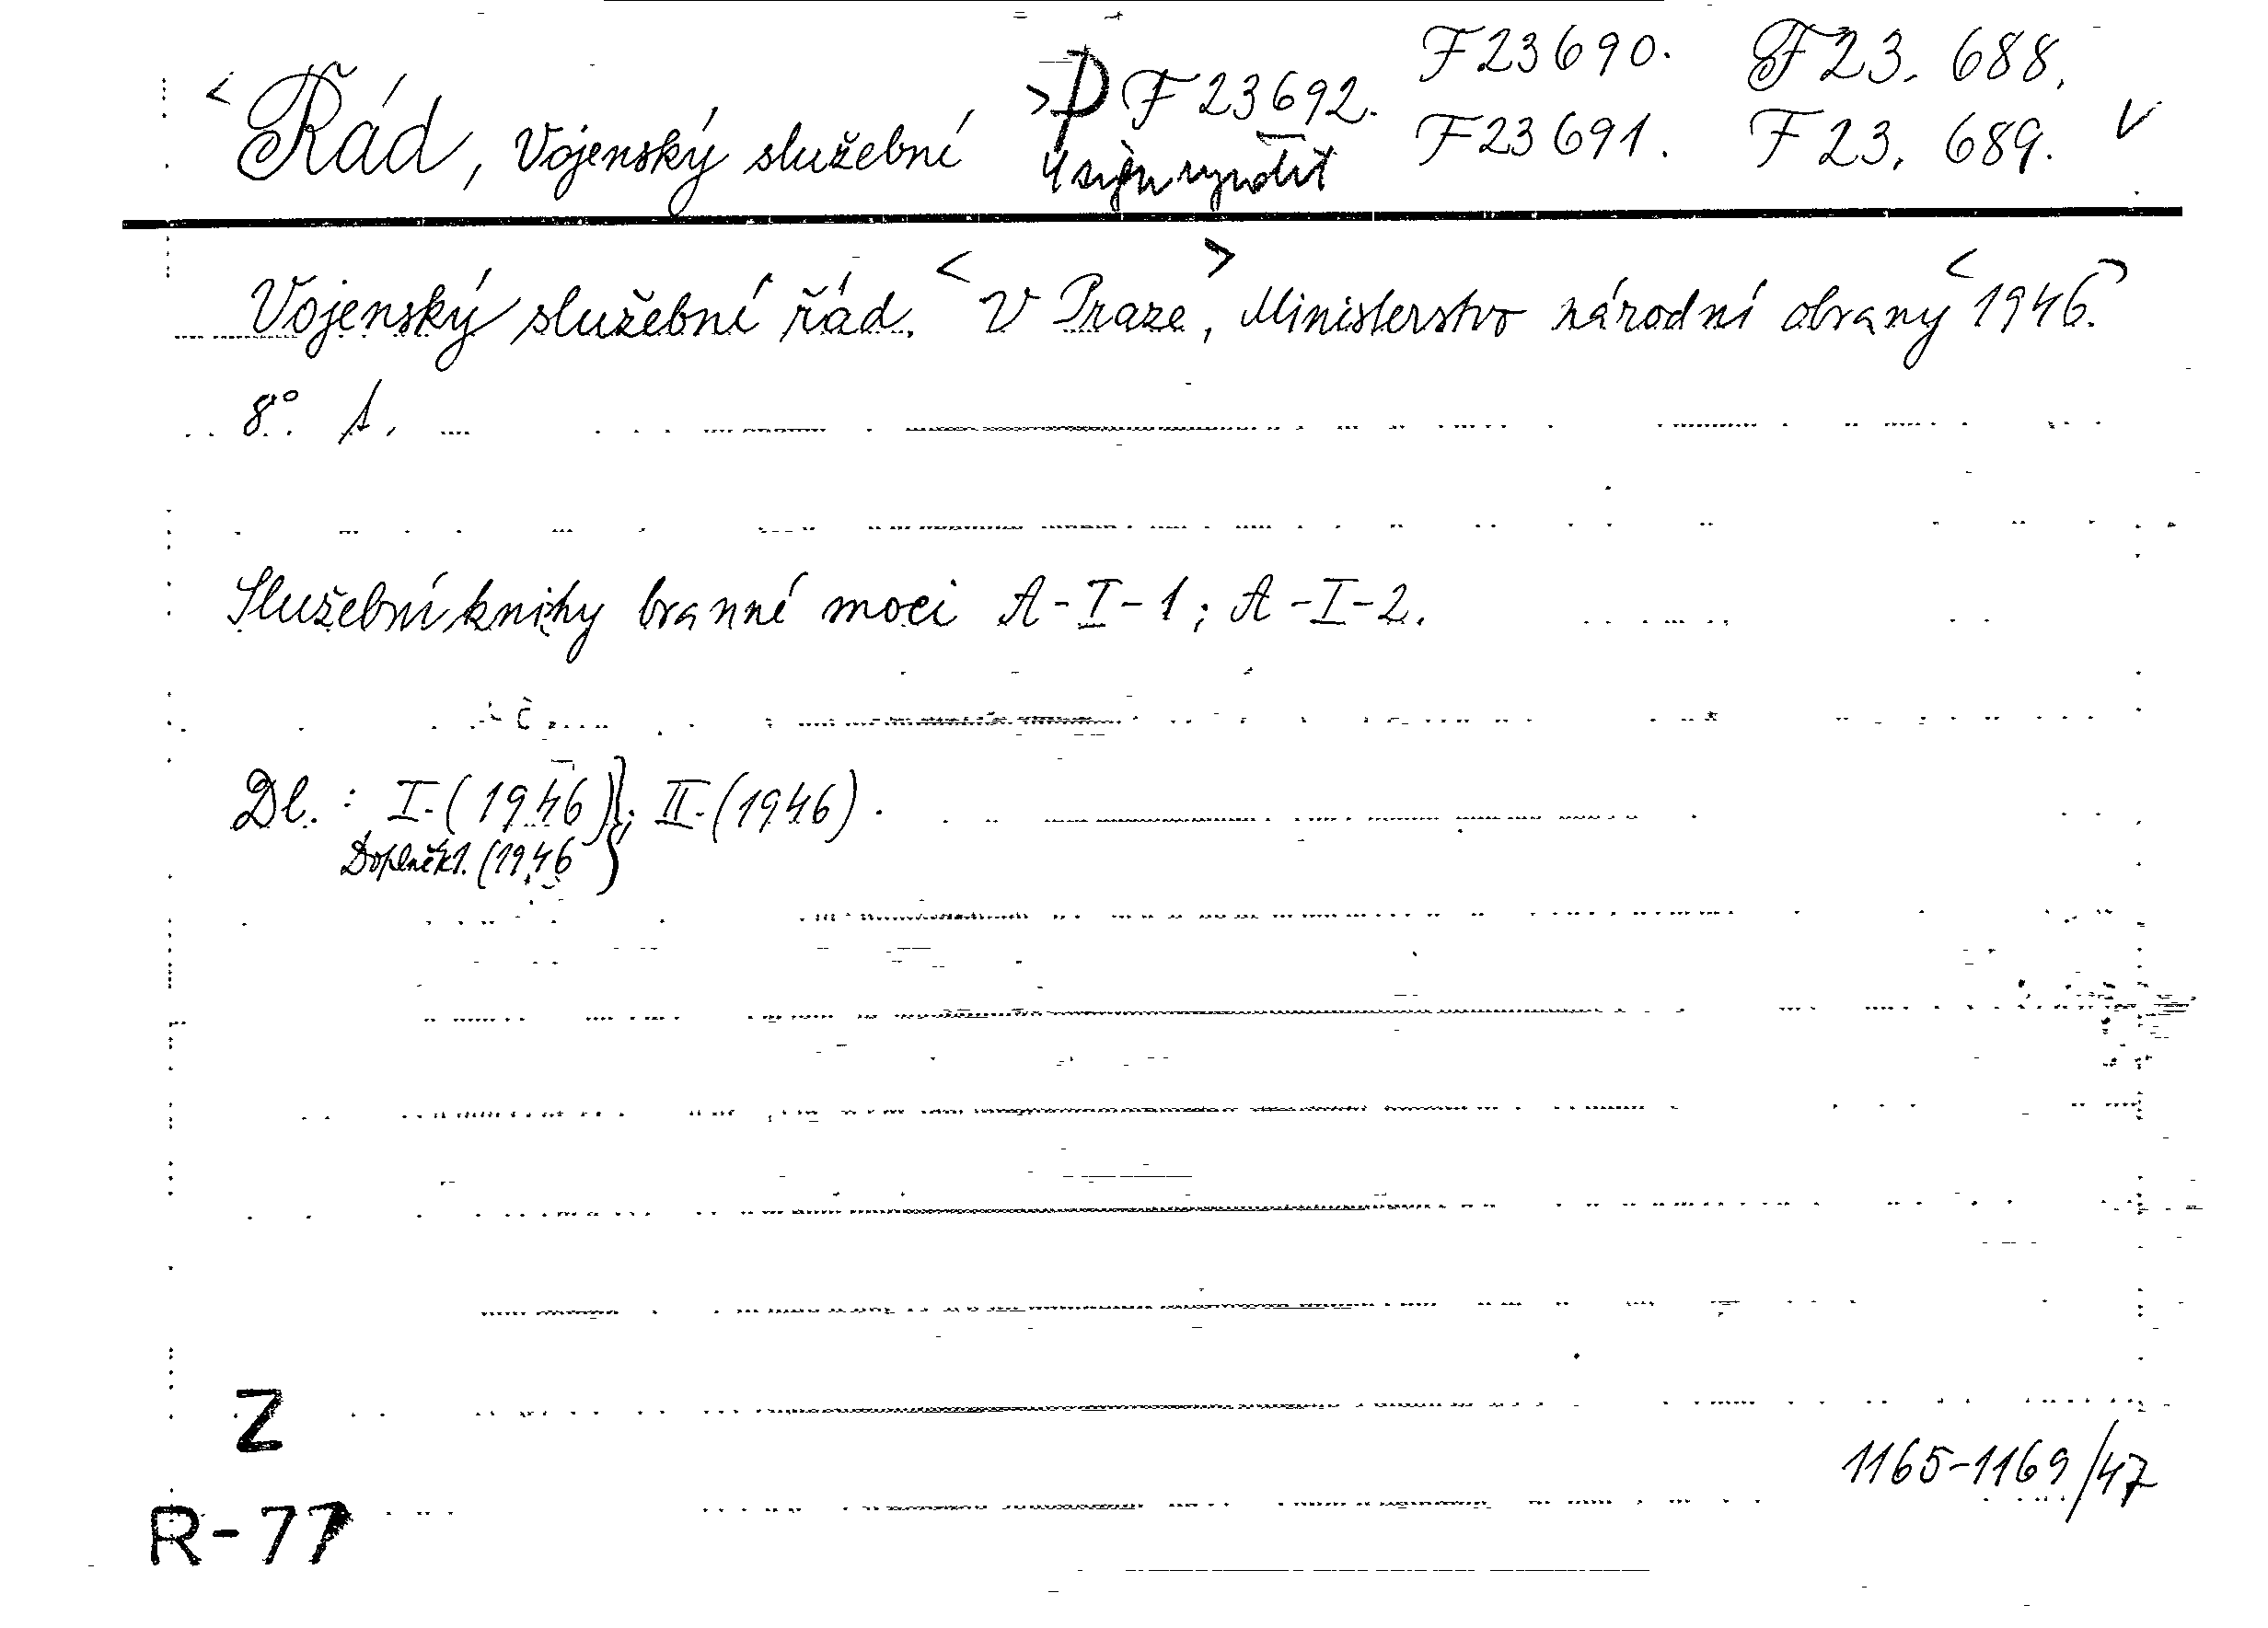 F23690. F23. 688.
< Řád, Vojenský služební > p F23692. F23691. F23. 689. V
4 sign
Vojenský služební řád. < V Praze, > Ministerstvo národní obrany < 1946. >
8° s.
Služební knihy branné moci A-I-1; A-I-2.
Dl. : I. (1946)}; II. (1946).
Doplněk 1. (1946 }
Z
1165-1169/47
R-77